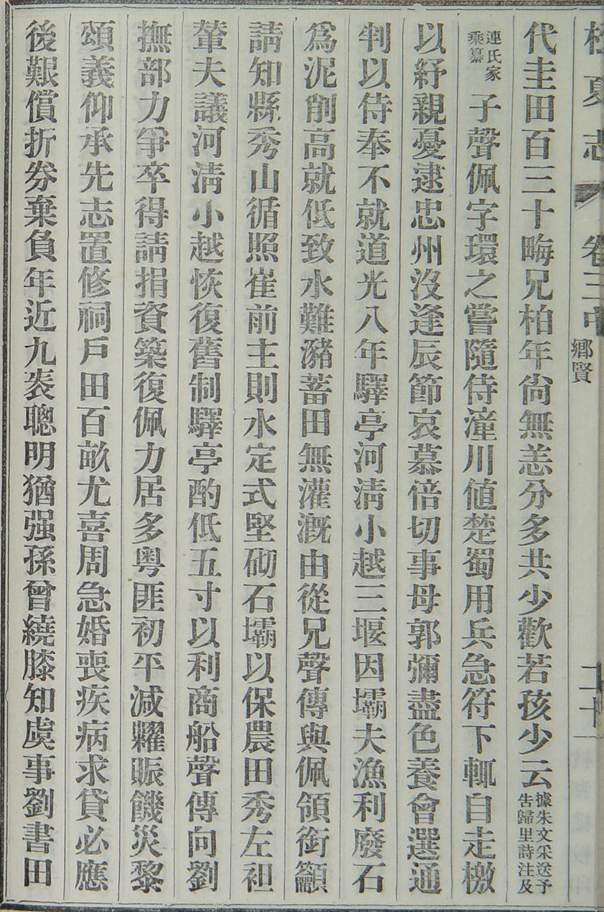 夏志
卷三
鄉賢
代圭田百三十畮兄柏年尙無恙分多共少歡若孩少云據朱文采送予告歸里詩注及
連氏家乘纂子聲佩字環之嘗隨侍潼川値楚蜀用兵急符下輒自走檄
以紓親憂逮忠州沒逢辰節哀慕倍切事母郭彌盡色養會選通
判以侍奉不就道光八年驛亭河淸小越三堰因壩夫漁利廢石
爲泥削高就低致水難豬蓄田無灌漑由從兄聲傳與佩領銜籲
請知縣秀山循照崔前主則水定式堅砌石壩以保農田秀左袒
葷夫議河淸小越恢復舊制驛亭酌低五寸以利商船聲傳向劉
撫部力爭卒得請捐資築復佩力居多粵匪初平減糶賑饑災黎
頌義仰承先志置修祠戶田百畝尤喜周急婚喪疾病求貸必應
後艱償折券棄負年近九袠聰明猶强孫曾繞膝知虞事劉書田